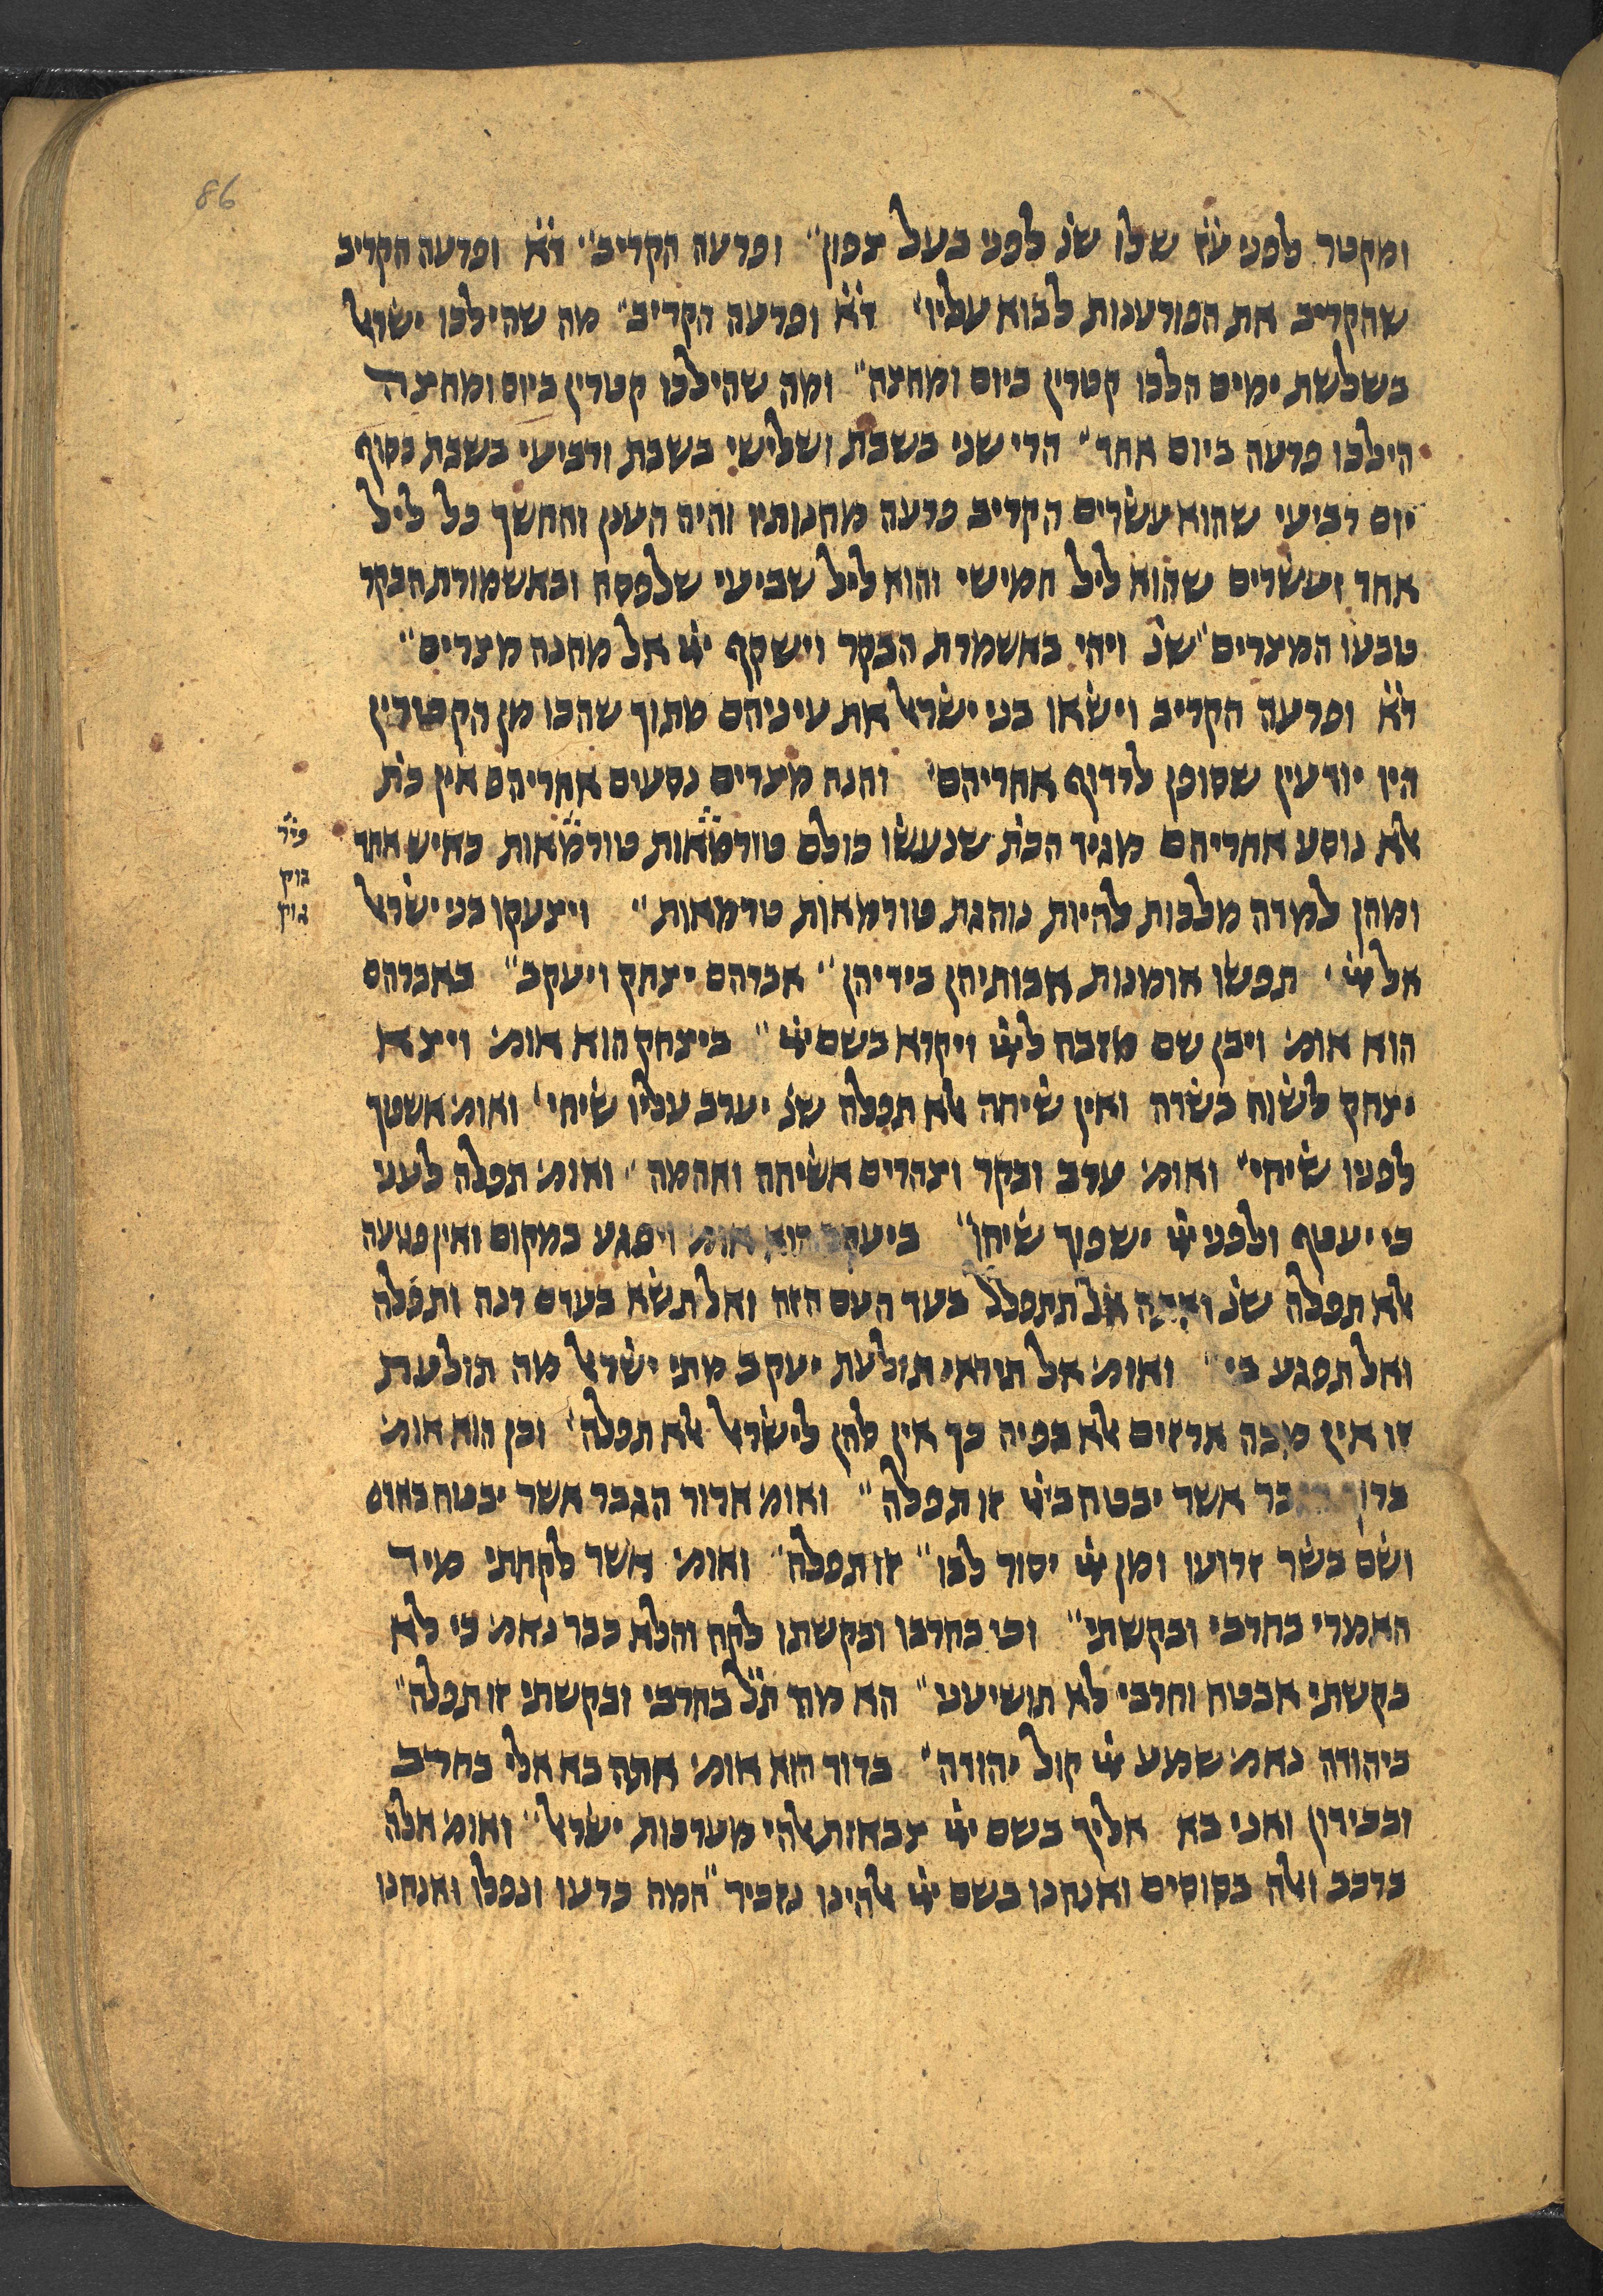 86
ומקטר לפני ע֗ז֗ שלו שנ֗ לפני בעל צפון״ ופרעה הקריב״ ד֗א֗ ופרעה הקריב
שהקריב את הפורענות לבוא עליו׳ ד֗א֗ ופרעה הקריב״ מה שהילכו ישראל
בשלשת ימים הלכו קטרין ביום ומחצה״ ומה שהילכו קטרין ביום ומחצה
הילכו פרעה ביום אחד״ הרי שני בשבת ושלישי בשבת ורביעי בשבת בסוף
יום רביעי שהוא עשרים הקריב פרעה מחנותיו והיה הענן והחשך כל ליל
אחד ועשרים שהוא ליל חמישי והוא ליל שביעי שלפסח ובאשמורת הבקר
טבעו המצרים״ שנ֗ ויהי באשמרת הבקר וישקף ייי אל מחנה מצרים״
ד֗א֗ ופרעה הקריב וישאו בני ישראל את עיניהם מתוך שהכו מן הקטורין
היו יודעין שסופן לרדוף אחריהם׳ והנה מצרים נסעים אחריהם אין כת֗
אלא נוסע אחריהם מגיד הכת֗ שנעשו כולם טורמאות טורמאות כאיש אחד
פיר֗
בוק
גוק
ומהן למדה מלכות להיות נוהגת טורמאות טרמאות״ ויצעקו בני ישראל
אל ייי׳ תפשו אומנות אבותיהן בידיהן״ אברהם יצחק ויעקב״ באברהם
הוא אומ׳ ויבן שם מזבח לייי ויקרא בשם ייי״ ביצחק הוא אומ׳ ויצא
יצחק לשוח בשדה ואין שיחה אלא תפלה שנ֗ יערב עליו שיחי׳ ואומ׳ אשפך
לפניו שיחי״ ואומ׳ ערב ובקר וצהרים אשיחה ואהמה״ ואומ׳ תפלה לעני
כי יעטף ולפני ייי ישפוך שיחו״ ביעקב הוא אומ׳ ויפגע במקום ואין פגיעה
אלא תפלה שנ֗ ואתה אל תתפלל בעד העם הזה ואל תשא בעדם רנה ותפלה
ואל תפגע בי״ ואומ׳ אל תיראי תולעת יעקב מתי ישראל מה תולעת
זו אינן מכה ארזים אלא בפיה כך אין להן לישראל אלא תפלה׳ וכן הוא אומ׳
ברוך הגבר אשר יבטח בייי זו תפלה״ ואומ׳ ארור הגבר אשר יבטח באדם
ושם בשר זרועו ומן ייי יסור לבו״ זו תפלה״ ואומ׳ אשר לקחתי מיד
האמרי בחרבי ובקשתי״ וכי בחרבו ובקשתו לקח והלא כבר נאמ׳ כי לא
בקשתי אבטח וחרבי לא תושיעני״ הא מה ת֗ל֗ בחרבי ובקשתי זו תפלה״
ביהודה נאמ׳ שמע ייי קול יהודה״ בדוד הוא אומ׳ אתה בא אלי בחרב
ובכידון ואני בא אליך בשם ייי צבאות אלהי מערכות ישראל״ ואומ׳ אלה
ברכב ואלה בסוסים ואנחנו בשם ייי אלהינו נזכיר״ המה כרעו ונפלו ואנחנו